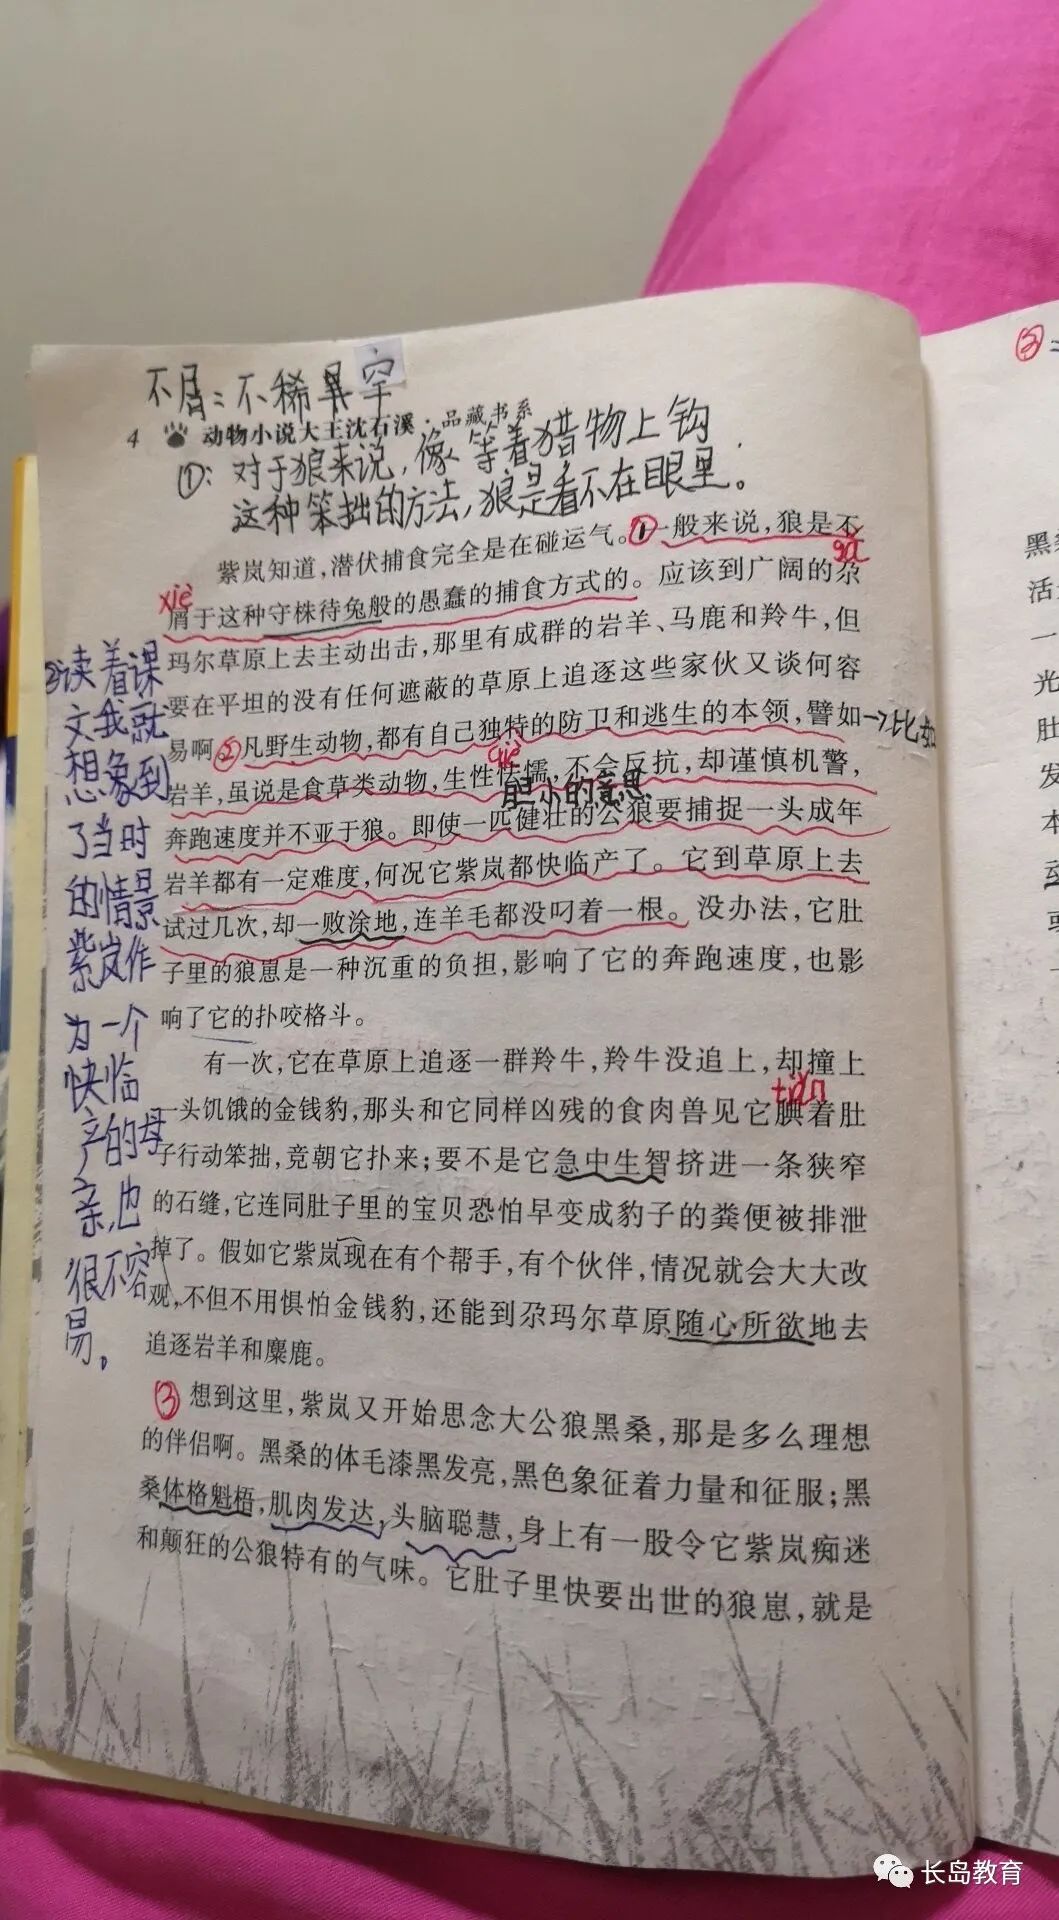 不屑：不稀罕
4 动物小说大王沈石溪·品藏书系
①：对于狼来说，像等着猎物上钩
这种笨拙的方法，狼是看不在眼里。
紫岚知道，潜伏捕食完全是在碰运气。①一般来说，狼是不
gǎ
xiè
屑于这种守株待兔般的愚蠢的捕食方式的。应该到广阔的尕
玛尔草原上去主动出击，那里有成群的岩羊、马鹿和羚牛，但
要在平坦的没有任何遮蔽的草原上追逐这些家伙又谈何容
易啊②凡野生动物，都有自己独特的防卫和逃生的本领，譬如→比如
qiè
岩羊，虽说是食草类动物，生性怯懦，不会反抗，却谨慎机警，
胆小的意思
奔跑速度并不亚于狼。即使一匹健壮的公狼要捕捉一头成年
岩羊都有一定难度，何况它紫岚都快临产了。它到草原上去
试过几次，却一败涂地，连羊毛都没叼着一根。没办法，它肚
子里的狼崽是一种沉重的负担，影响了它的奔跑速度，也影
响了它的扑咬格斗。
有一次，它在草原上追逐一群羚牛，羚牛没追上，却撞上
tiǎn
一头饥饿的金钱豹，那头和它同样凶残的食肉兽见它腆着肚
子行动笨拙，竟朝它扑来；要不是它急中生智挤进一条狭窄
的石缝，它连同肚子里的宝贝恐怕早变成豹子的粪便被排泄
掉了。假如它紫岚现在有个帮手，有个伙伴，情况就会大大改
观，不但不用惧怕金钱豹，还能到尕玛尔草原随心所欲地去
追逐岩羊和麋鹿。
③想到这里，紫岚又开始思念大公狼黑桑，那是多么理想
的伴侣啊。黑桑的体毛漆黑发亮，黑色象征着力量和征服；黑
桑体格魁梧，肌肉发达，头脑聪慧，身上有一股令它紫岚痴迷
和颠狂的公狼特有的气味。它肚子里快要出世的狼崽，就是
②读着课
文我就
想象到
了当时
的情景
紫岚作
为一个
快临
产的母
亲，也
很不容
易。
黑
活
一
光
肚
发
本
动
长岛教育